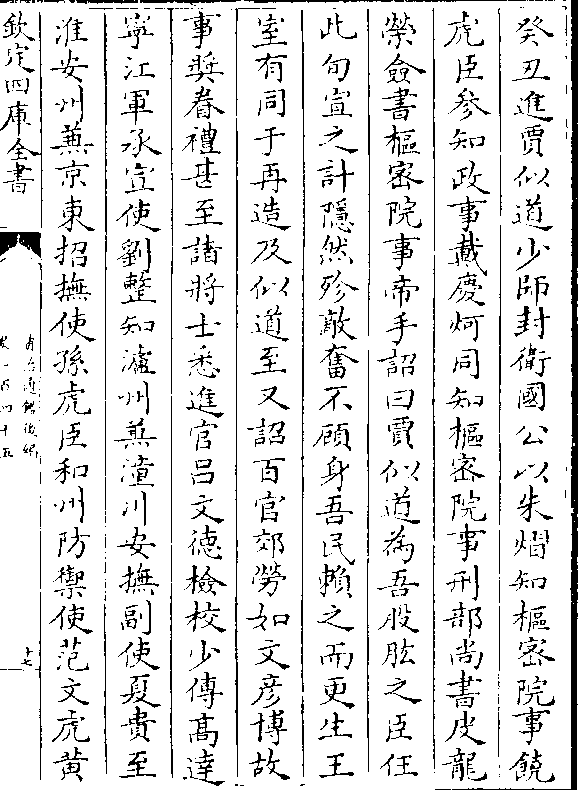 癸丑進賈似道少師封衛國公以朱熠知樞密院事饒
虎臣參知政事戴慶炣同知樞密院事刑部尚書皮龍
榮僉書樞密院事帝手詔曰賈似道為吾股肱之臣任
此旬宣之計隱然殄敵奮不顧身吾民賴之而更生王
室有同于再造及似道至又詔百官郊勞如文彦博故
事奨眷禮甚至諸將士悉進官吕文德檢校少傅髙達
寧江軍承宣使劉整知瀘州兼潼川安撫副使夏貴至
淮安州兼京東招撫使孫虎臣和州防禦使范文虎黄
欽定四庫全書
資治通鑑後編
卷一百四十五
十七